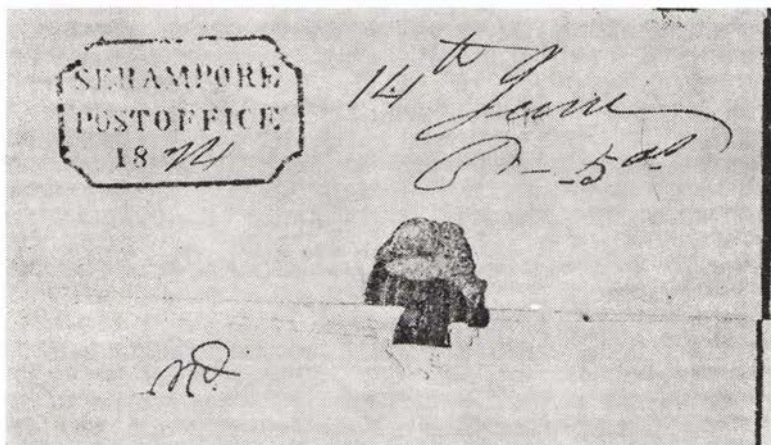 SERAMPORE
POSTOFFICE
18
14th
June
5 as